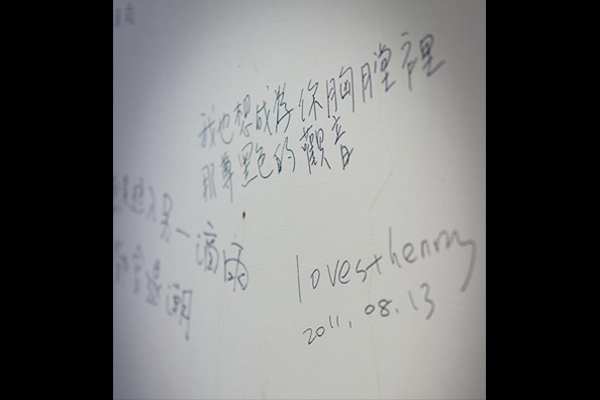 我也想成為你胸膛裡
那尊黑色的觀音
入另一滴雨
潮
lovesthenry
2011.08.13